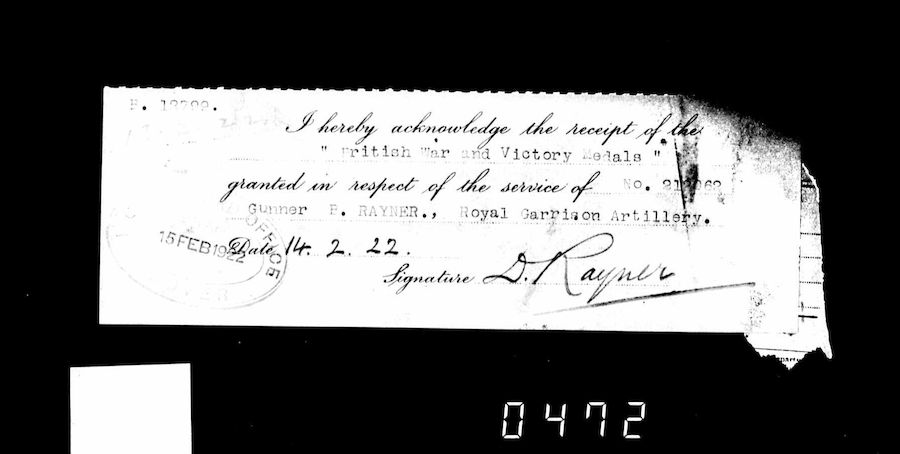 I hereby acknowledge the receipt of the
" British War and Victory Medals "
granted in respect of the service of No.
Gunner RAYNER., Royal Garrison Artillery.
OFFICE
15 FEB 1922
Date 14. 2. 22.
Signature D. Rayner
0472